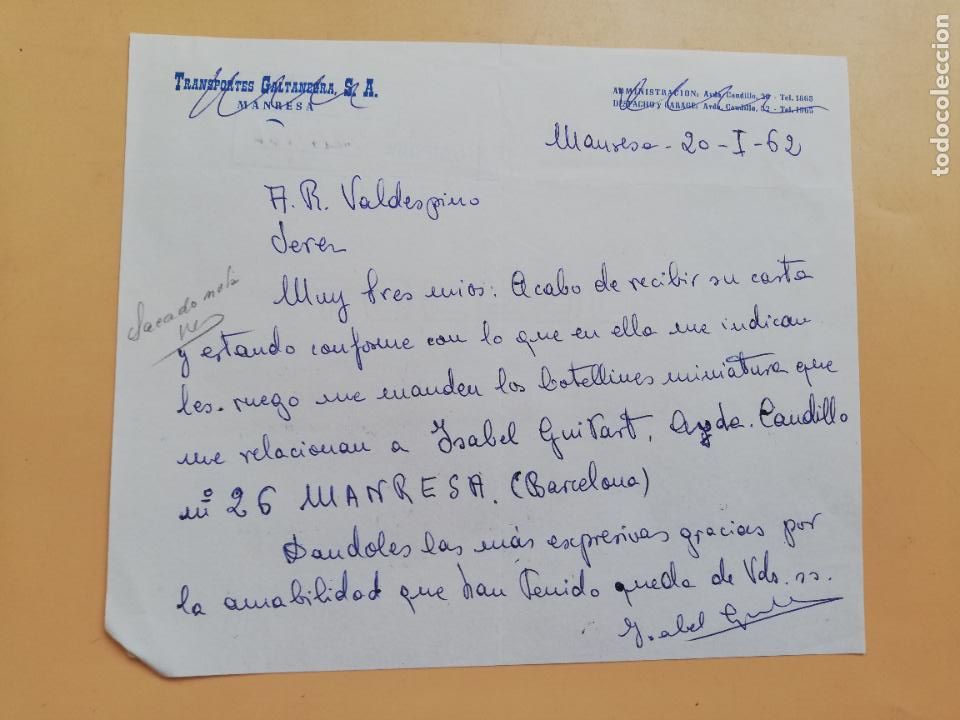 TRANSPORTES GALTANEGRA, S. A.
MANRESA
ADMINISTRACION: Avda. Caudillo, - Tel. 1868
DESPACHO y GARAGE: Avda. Caudillo, - Tel.
Manresa - 20-I-62
A. R. Valdespino
Jerez
Muy sres mios: Acabo de recibir su carta
y estando conforme con lo que en ella me indican
les ruego me manden los botellines miniatura que
me relacionan a Isabel Guitart, Avda. Caudillo
nº 26 MANRESA. (Barcelona)
Dandoles las más expresivas gracias por
la amabilidad que han tenido queda de Vds. ss.
Isabel
Sacado
todocoleccion